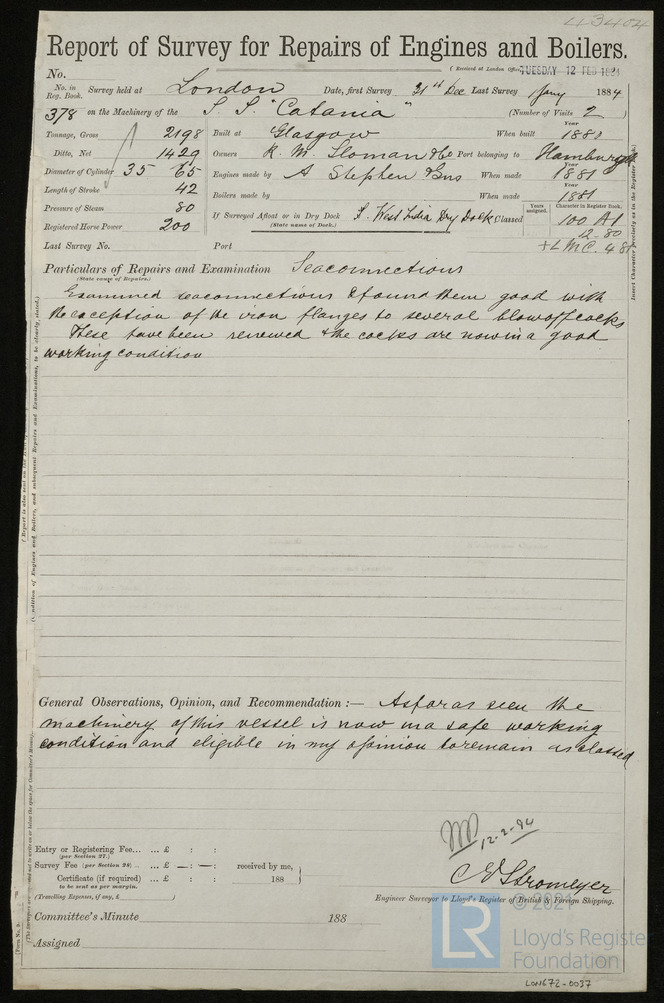 43404
Report of Survey for Repairs of Engines and Boilers.
No. (Received at London Office TUESDAY 12 FEB 1884
No. in Reg. Book. Survey held at London Date, first Survey 31st Dec Last Survey 1 Jany 1884
378 on the Machinery of the S. S. "Catania" (Number of Visits 2 )
Tonnage, Gross 2198 Built at Glasgow When built Year 1881
Ditto, Net 1429 Owners R. M. Sloman & Co Port belonging to Hamburg
Diameter of Cylinder 35 65 Engines made by A Stephen & Sons When made Year 1881
Length of Stroke 42 Boilers made by When made Year 1881
Pressure of Steam 80 If Surveyed Afloat or in Dry Dock S. West India Dry Dock Classed Years assigned. Character in Register Book. 100 A1
(State name of Dock.)
Registered Horse Power 200 12-80
Last Survey No. Port + LMC. 4 81
Particulars of Repairs and Examination Seaconnections
(State cause of Repairs.)
Examined seaconnections & found them good with
the exception of the iron flanges to several blowoffcocks
These have been renewed & the cocks are now in a good
working condition
General Observations, Opinion, and Recommendation :— As far as seen the
machinery of this vessel is now in a safe working
condition and eligible in my opinion to remain as classed
12-2-84
Entry or Registering Fee... ... £ : :
(per Section 27.)
Survey Fee (per Section 28) ... £ — : — :
received by me,
Certificate (if required) ... £ : : 188
to be sent as per margin.
(Travelling Expenses, if any, £ )
C E Stromeyer
Engineer Surveyor to Lloyd's Register of British & Foreign Shipping.
Committee's Minute 188
Assigned
© 2021
LR
Lloyd's Register
Foundation
LON672-0037